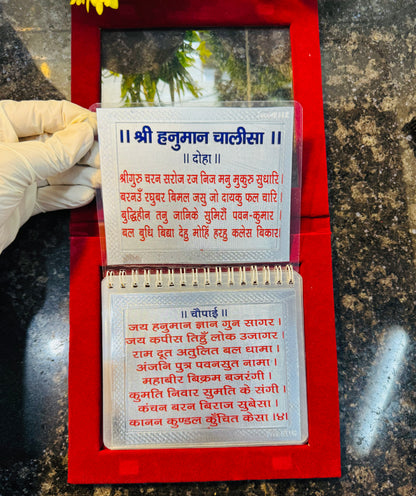 ॥ श्री हनुमान चालीसा ॥
॥ दोहा ॥
श्रीगुरु चरन सरोज रज निज मनु मुकुरु सुधारि।
बरनउँ रघुबर बिमल जसु जो दायकु फल चारि।
बुद्धिहीन तनु जानिके सुमिरौं पवन-कुमार।
बल बुधि बिद्या देहु मोहिं हरहु कलेस बिकार
॥ चौपाई ॥
जय हनुमान ज्ञान गुन सागर।
जय कपीस तिहुँ लोक उजागर।
राम दूत अतुलित बल धामा।
अंजनि पुत्र पवनसुत नामा।
महाबीर बिक्रम बजरंगी।
कुमति निवार सुमति के संगी।
कंचन बरन बिराज सुबेसा।
कानन कुण्डल कुँचित केसा।४।